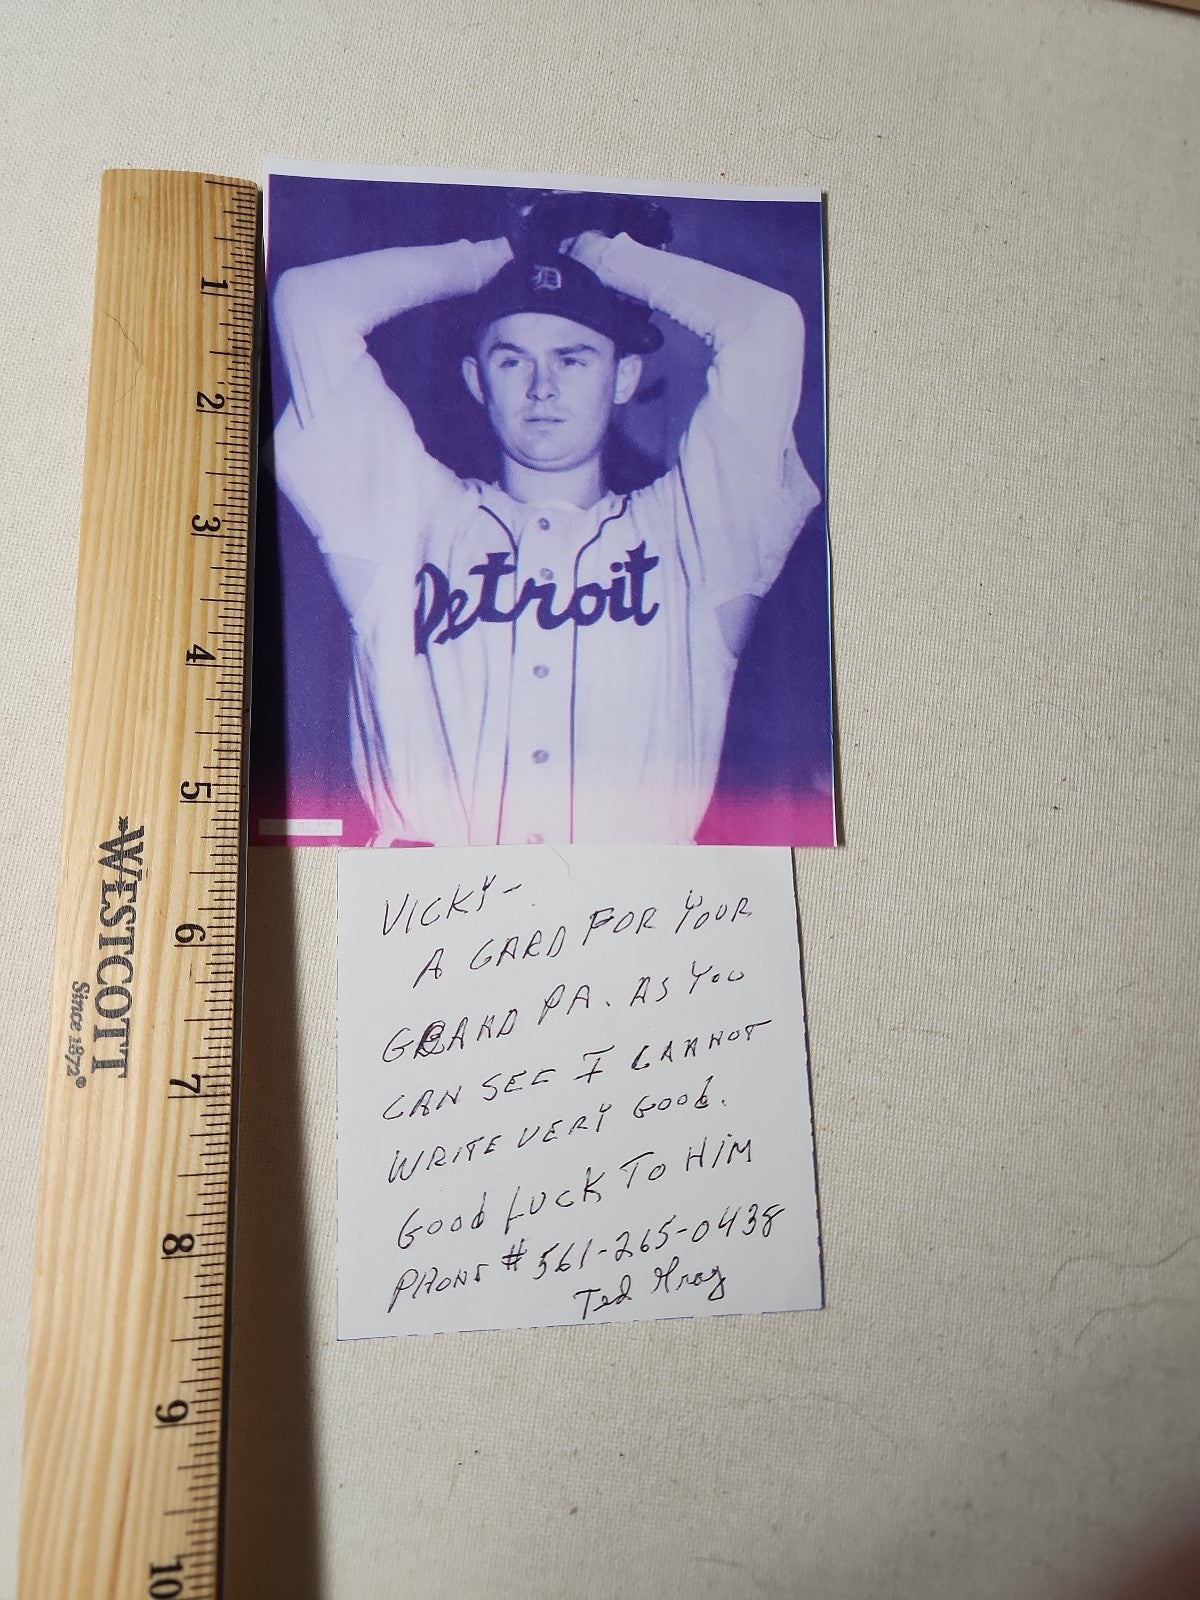 D
Detroit
VICKY-
A CARD FOR YOUR
GRAND PA. AS YOU
CAN SEE I CANNOT
WRITE VERY GOOD.
GOOD LUCK TO HIM
PHONE # 561-265-0438
Ted Gray
1
2
3
4
5
6
7
8
9
10
WESTCOTT
Since 1872®